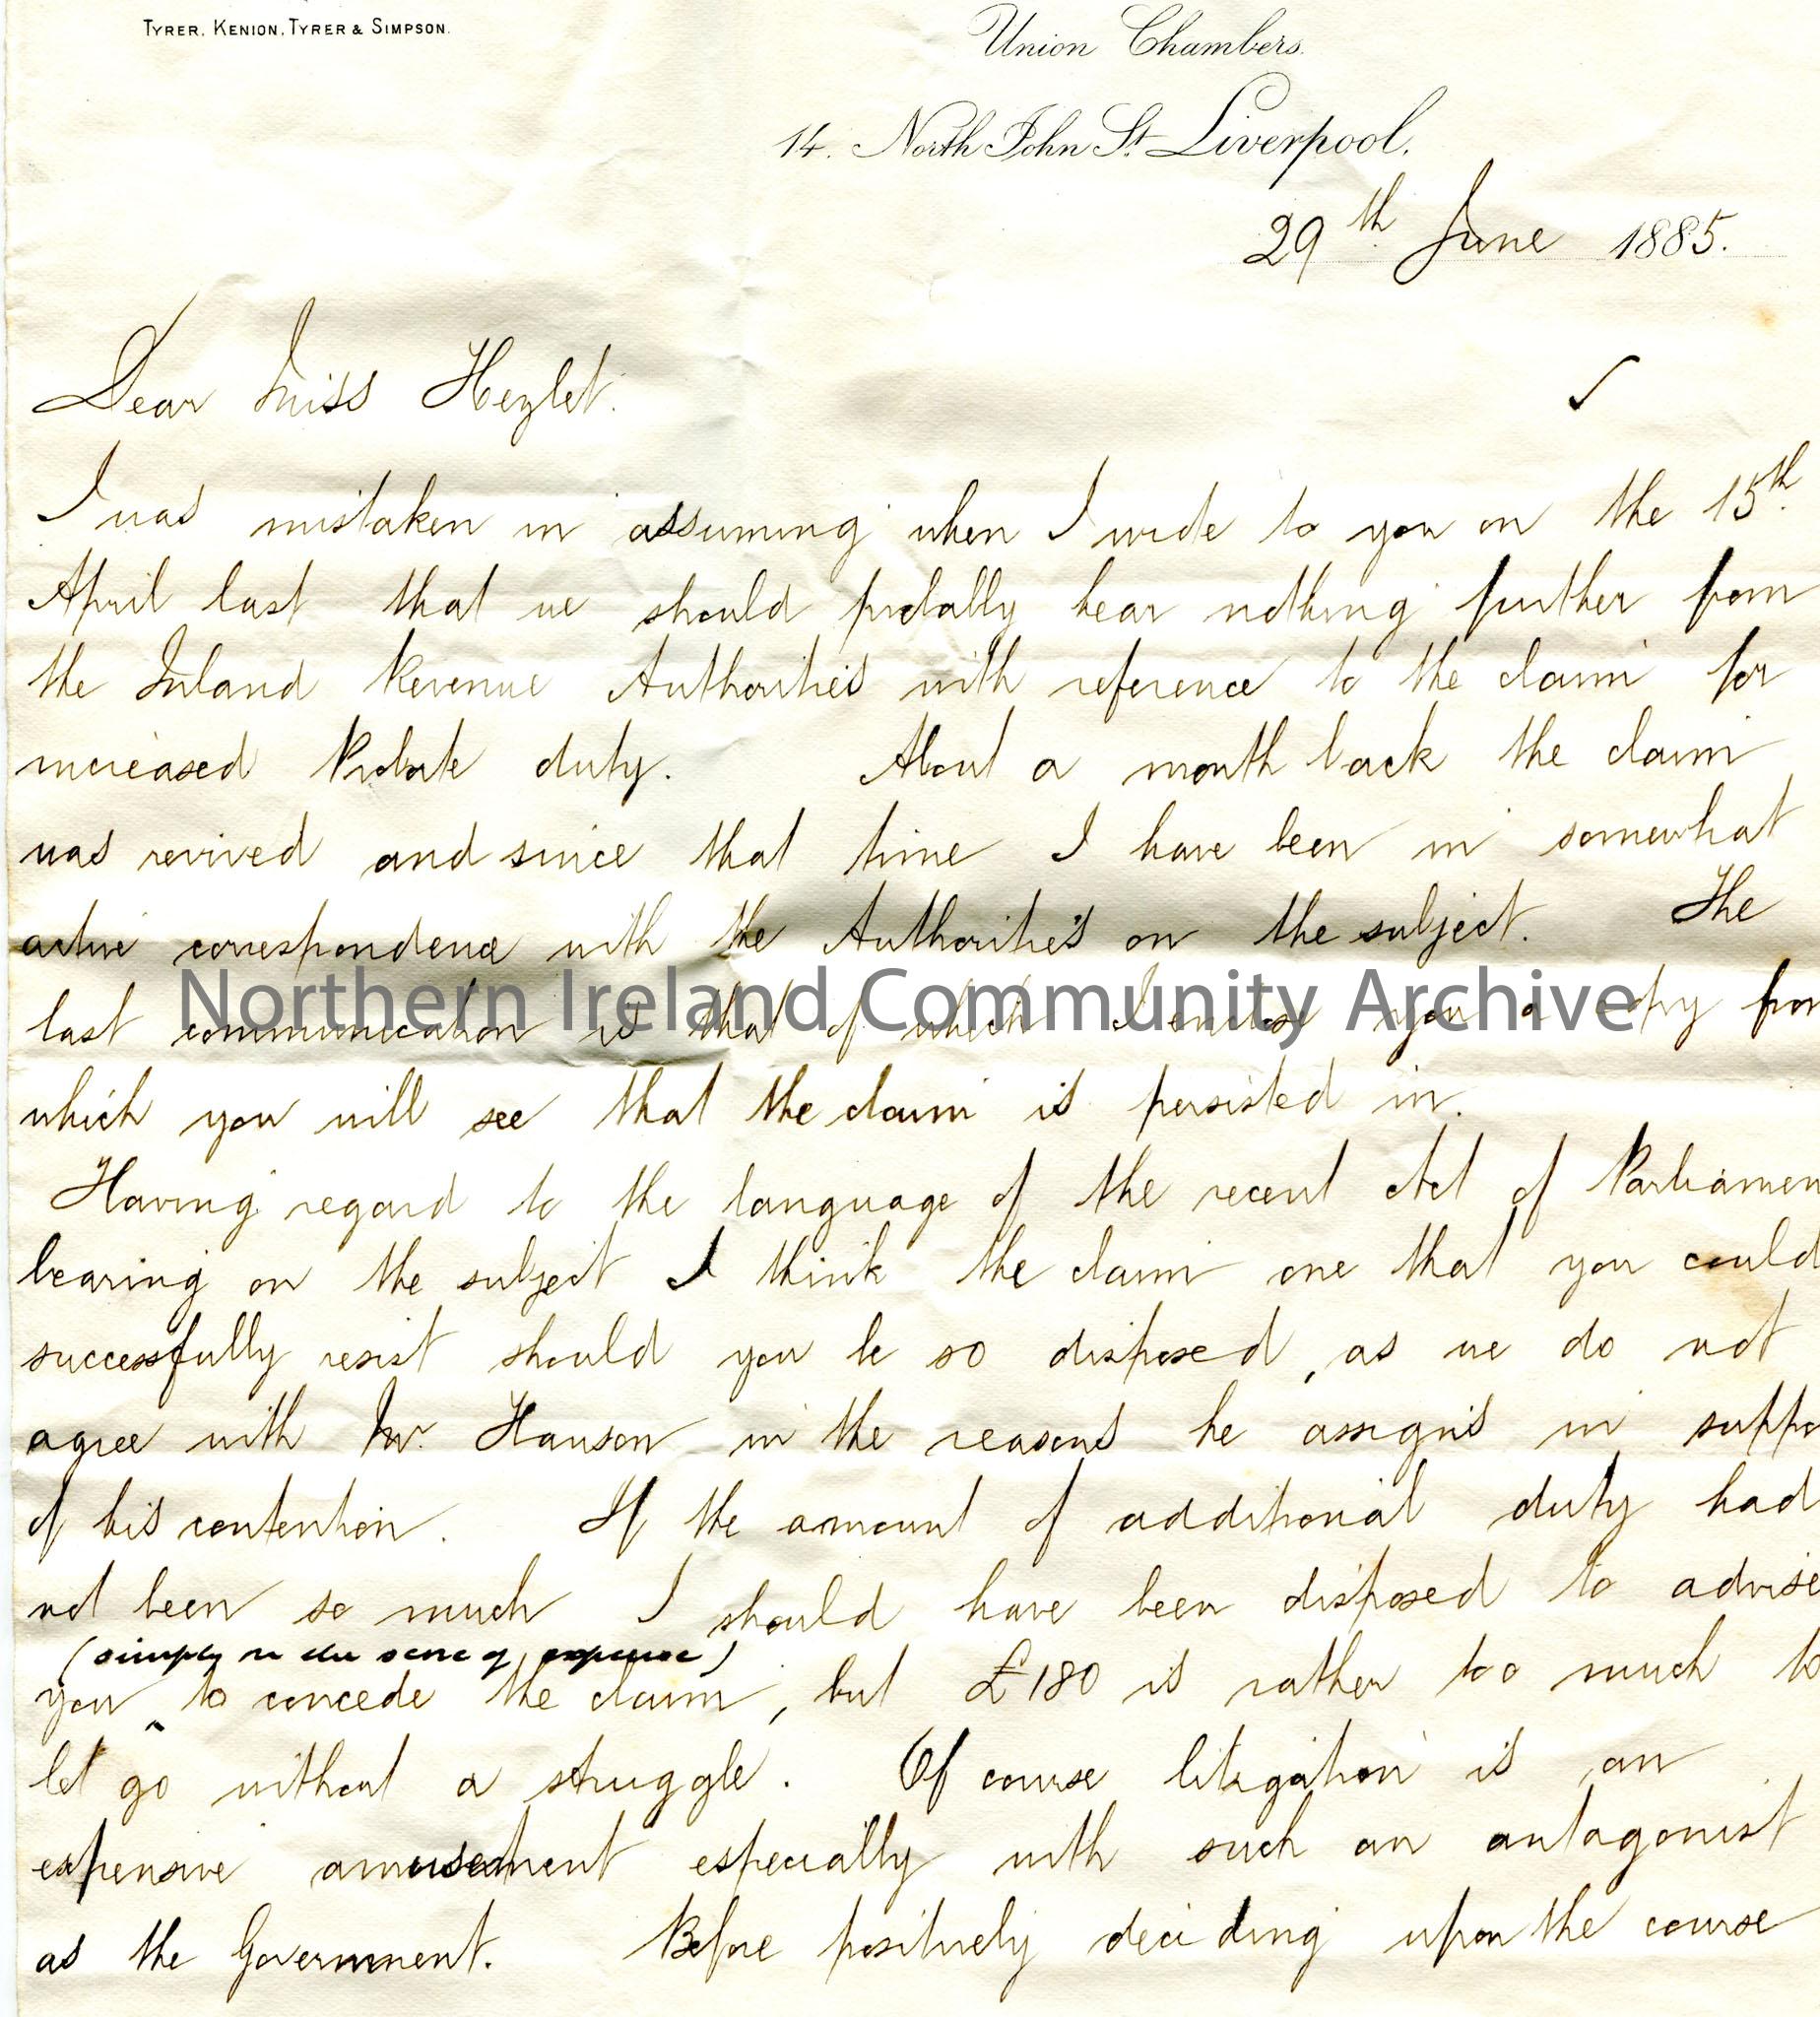 TYRER, KENION, TYRER & SIMPSON.
Union Chambers.
14. North John St. Liverpool.
29th June 1885.
Dear Miss Hezlet.
I was mistaken in assuming when I wrote to you on the 15th.
April last that we should probably hear nothing further from
the Inland Revenue Authorities with reference to the claim for
increased Probate duty. About a month back the claim
was revived and since that time I have been in somewhat
active correspondence with the Authorities on the subject. The
Northern Ireland Community Archive
last communication is that of which I enclose you a copy from
which you will see that the claim is persisted in.
Having regard to the language of the recent Act of Parliamen
bearing on the subject I think the claim one that you could
successfully resist should you be so disposed, as we do not
agree with Mr. Hanson in the reasons he assigns in suppo
of his contention. If the amount of additional duty had
not been so much I should have been disposed to advise
(simply on the score of expense)
you ‸ to concede the claim, but £180 is rather too much to
let go without a struggle. Of course litigation is an
expensive amusement especially with such an antagonist
as the Government. Before positively deciding upon the course